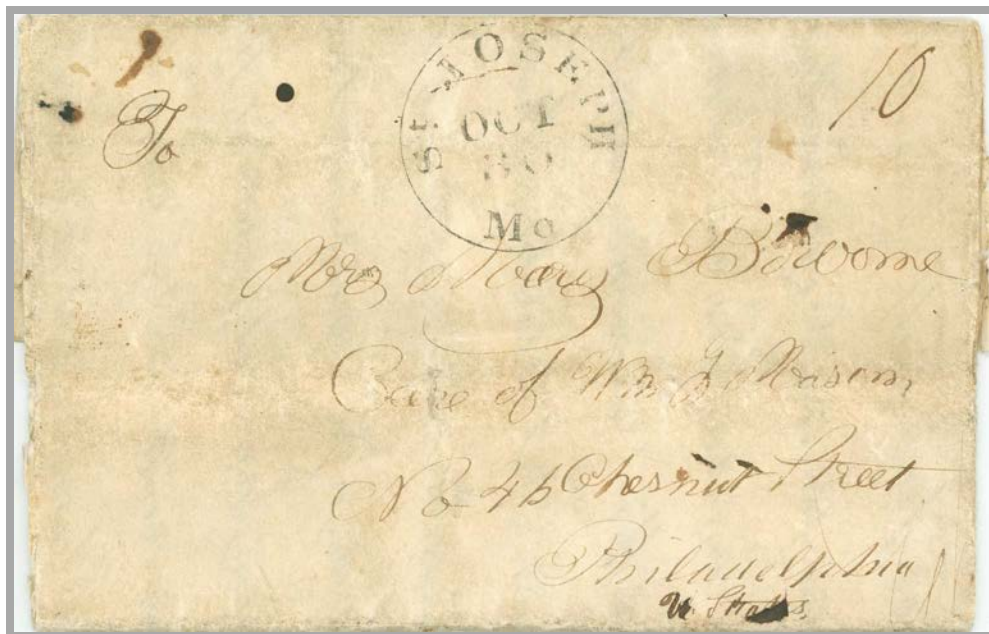 St. JOSEPH
OCT
30
Mo
10
To
Mrs Mary
Care of Wm G Mason
No 46 Chesnut Street
Philadelphia
U. States